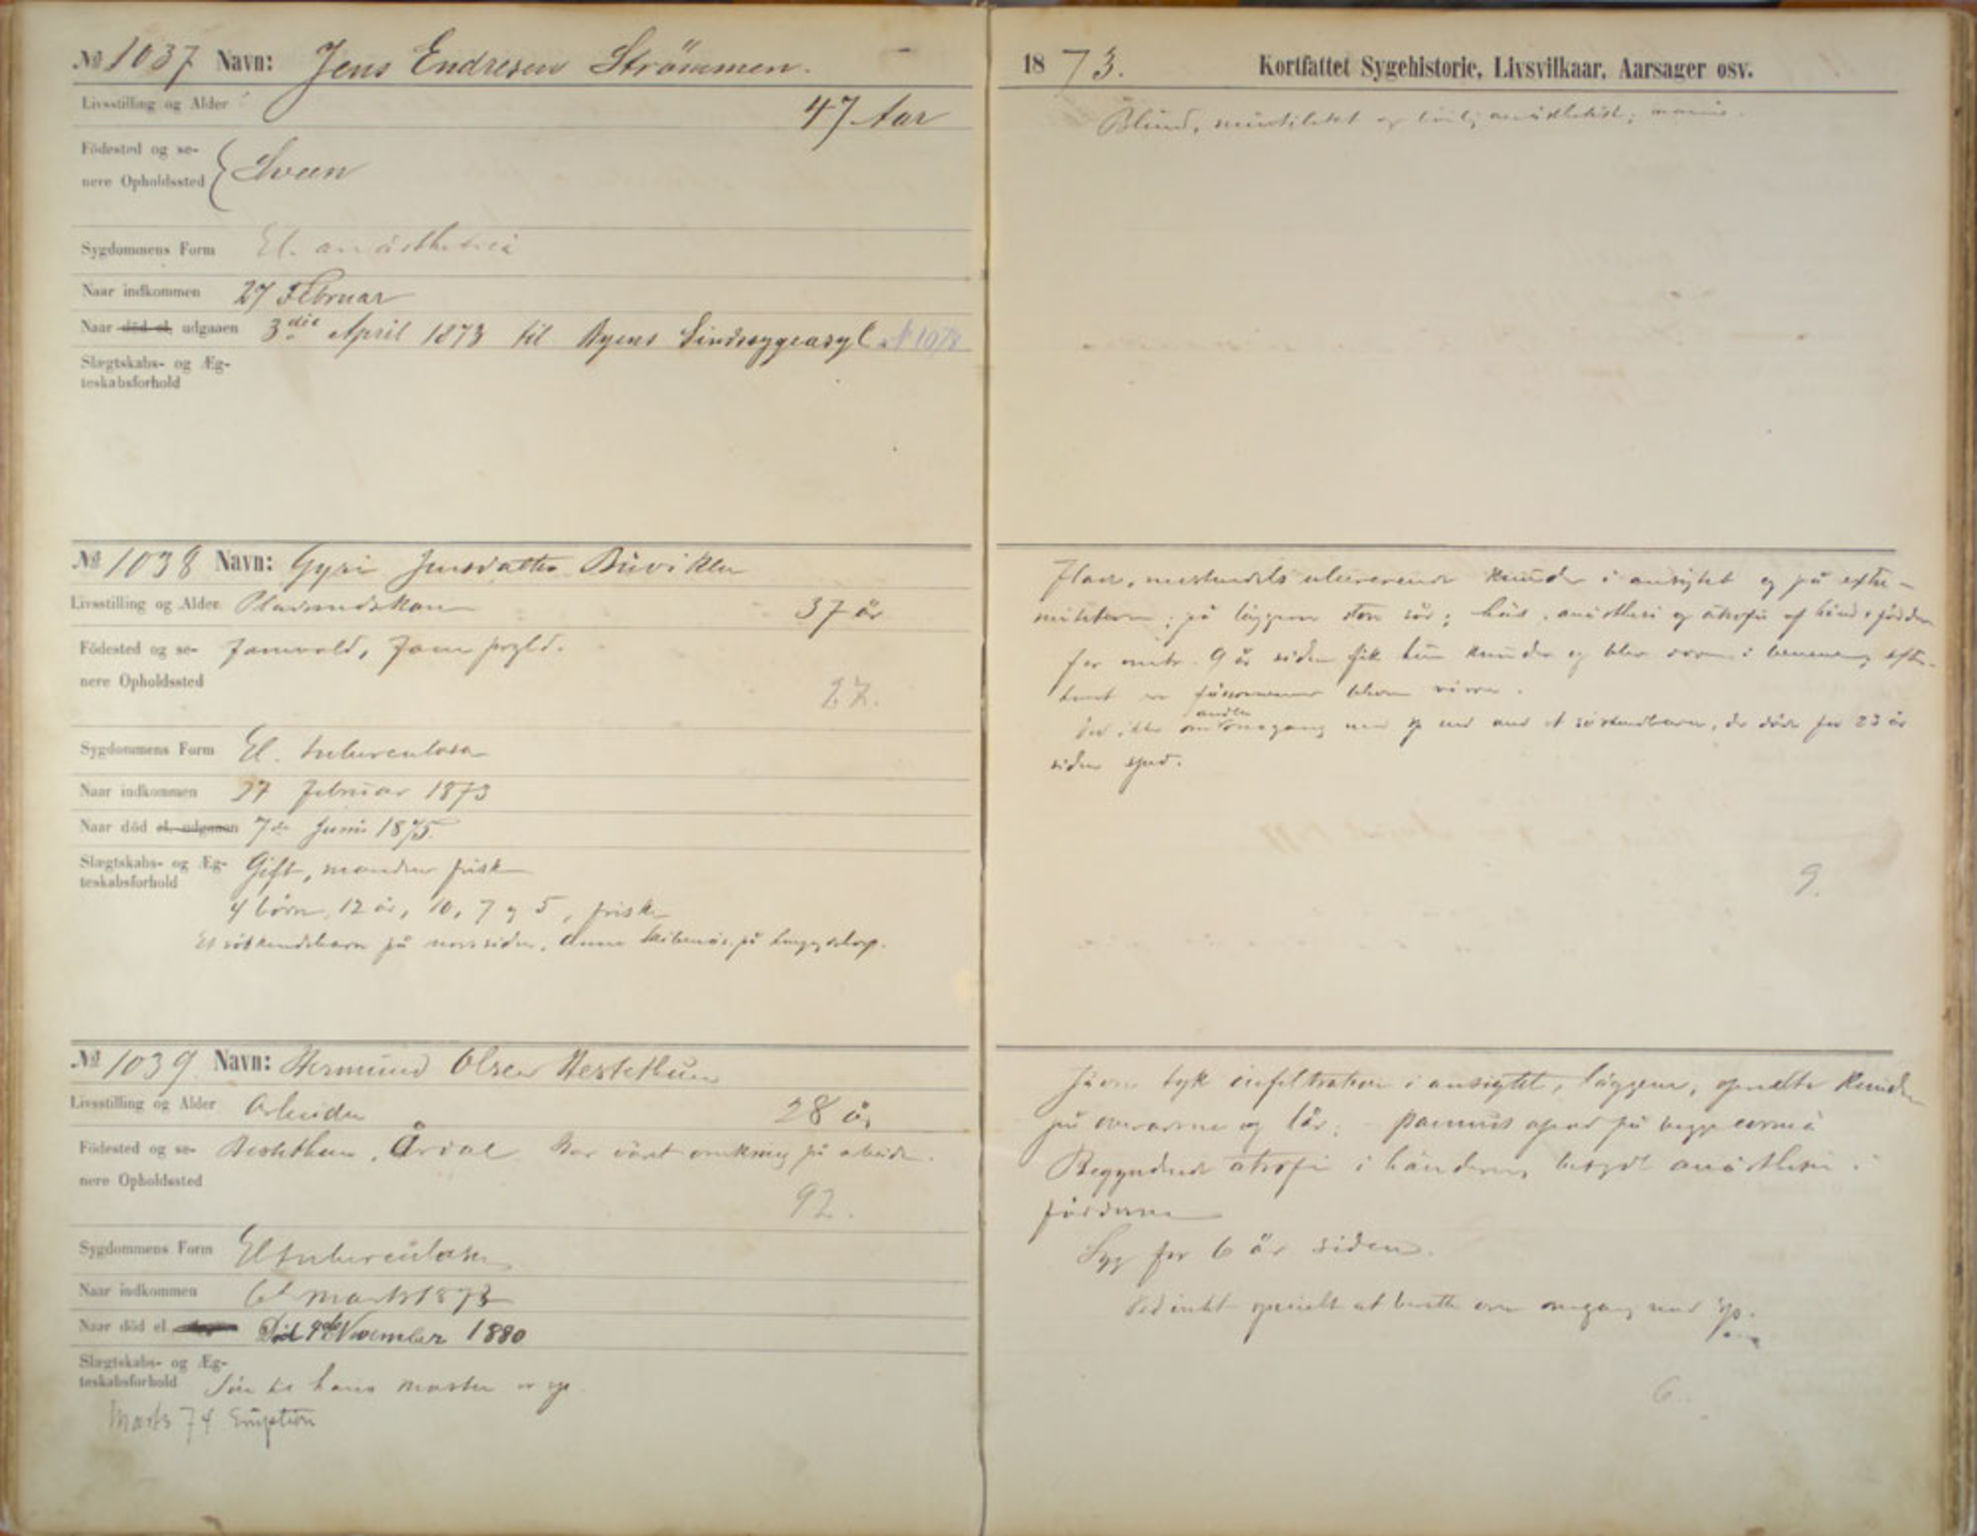 № 1037 Navn: Jens Endresen Strömmen.
Livsstilling og Alder 47 Aar
Födested og se-
nere Opholdssted Sveen
Sygdommens Form El. anästhetica
Naar indkommen 27 Februar
Naar död el. udgaaen 3die April 1873 til Byens Sindssygeasyl № 1078
Slægtskabs- og Æg-
teskabsforhold
№ 1038 Navn: Gyri Jensdatter Buviklen
Livsstilling og Alder Pladsmandskone 37 år
Födested og se- Fanevold, Fane prgld.
nere Opholdssted
27.
Sygdommens Form El. tuberculosa
Naar indkommen 27 Februar 1873
Naar död el. udgaaen 7de Juni 1875.
Slægtskabs- og Æg- Gift, manden frisk
teskabsforhold
4 börn, 12 år, 10, 7 og 5, friske
Et söskendebarn på morssiden, Anna på
№ 1039 Navn: Hermund Olsen Hestethun
Livsstilling og Alder Arbeider 28 år
Födested og se- Hestethun, Årdal Har väret omkring på arbeide.
nere Opholdssted
92.
Sygdommens Form El tuberculosa
Naar indkommen 6te marts 1873
Naar död el. Död 9de November 1880
Slægtskabs- og Æg-
teskabsforhold Sön til hans moster er sp.
Marts 74 Eruption
1873. Kortfattet Sygehistorie, Livsvilkaar, Aarsager osv.
Blind, mutileret og anästhetisk;
Flade, mestendels ulcererende knuder i ansigtet og på extre-
miteterne; på läggene store sår; häs, anästhesi og atrofi af händer og födder
For omtr. 9 år siden fik hun knuder og blev i benene,
siden
Ved ikke om omgang med sp end et söskendebarn, der döde for 23 år
siden sped.
9.
Jävn tyk infiltration i ansigtet, läggene, spredte knuder
på overarme og lår; pannus på begge cornea
Begyndende atrofi i händerne, betydl anästhesi i
födderne
Syg for 6 år siden.
Ved intet specielt at berette om omgang med sp.
6.